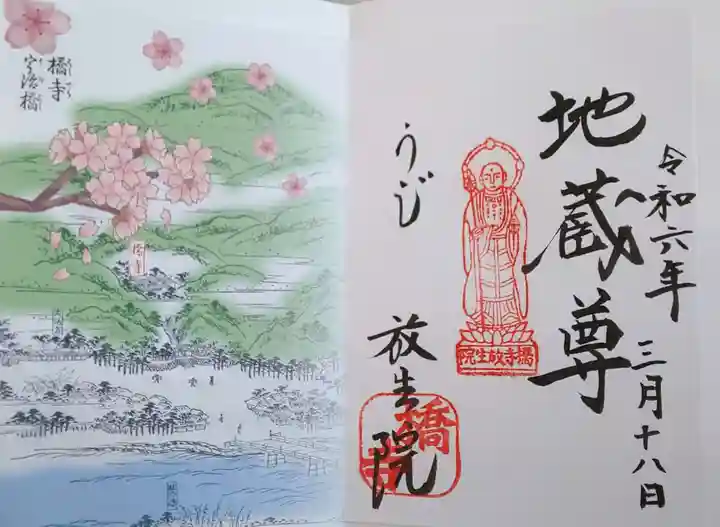 令和六年
三月十八日
地蔵尊
橋寺放生院
うじ
放生院
橋寺
橋寺
宇治橋
橋寺